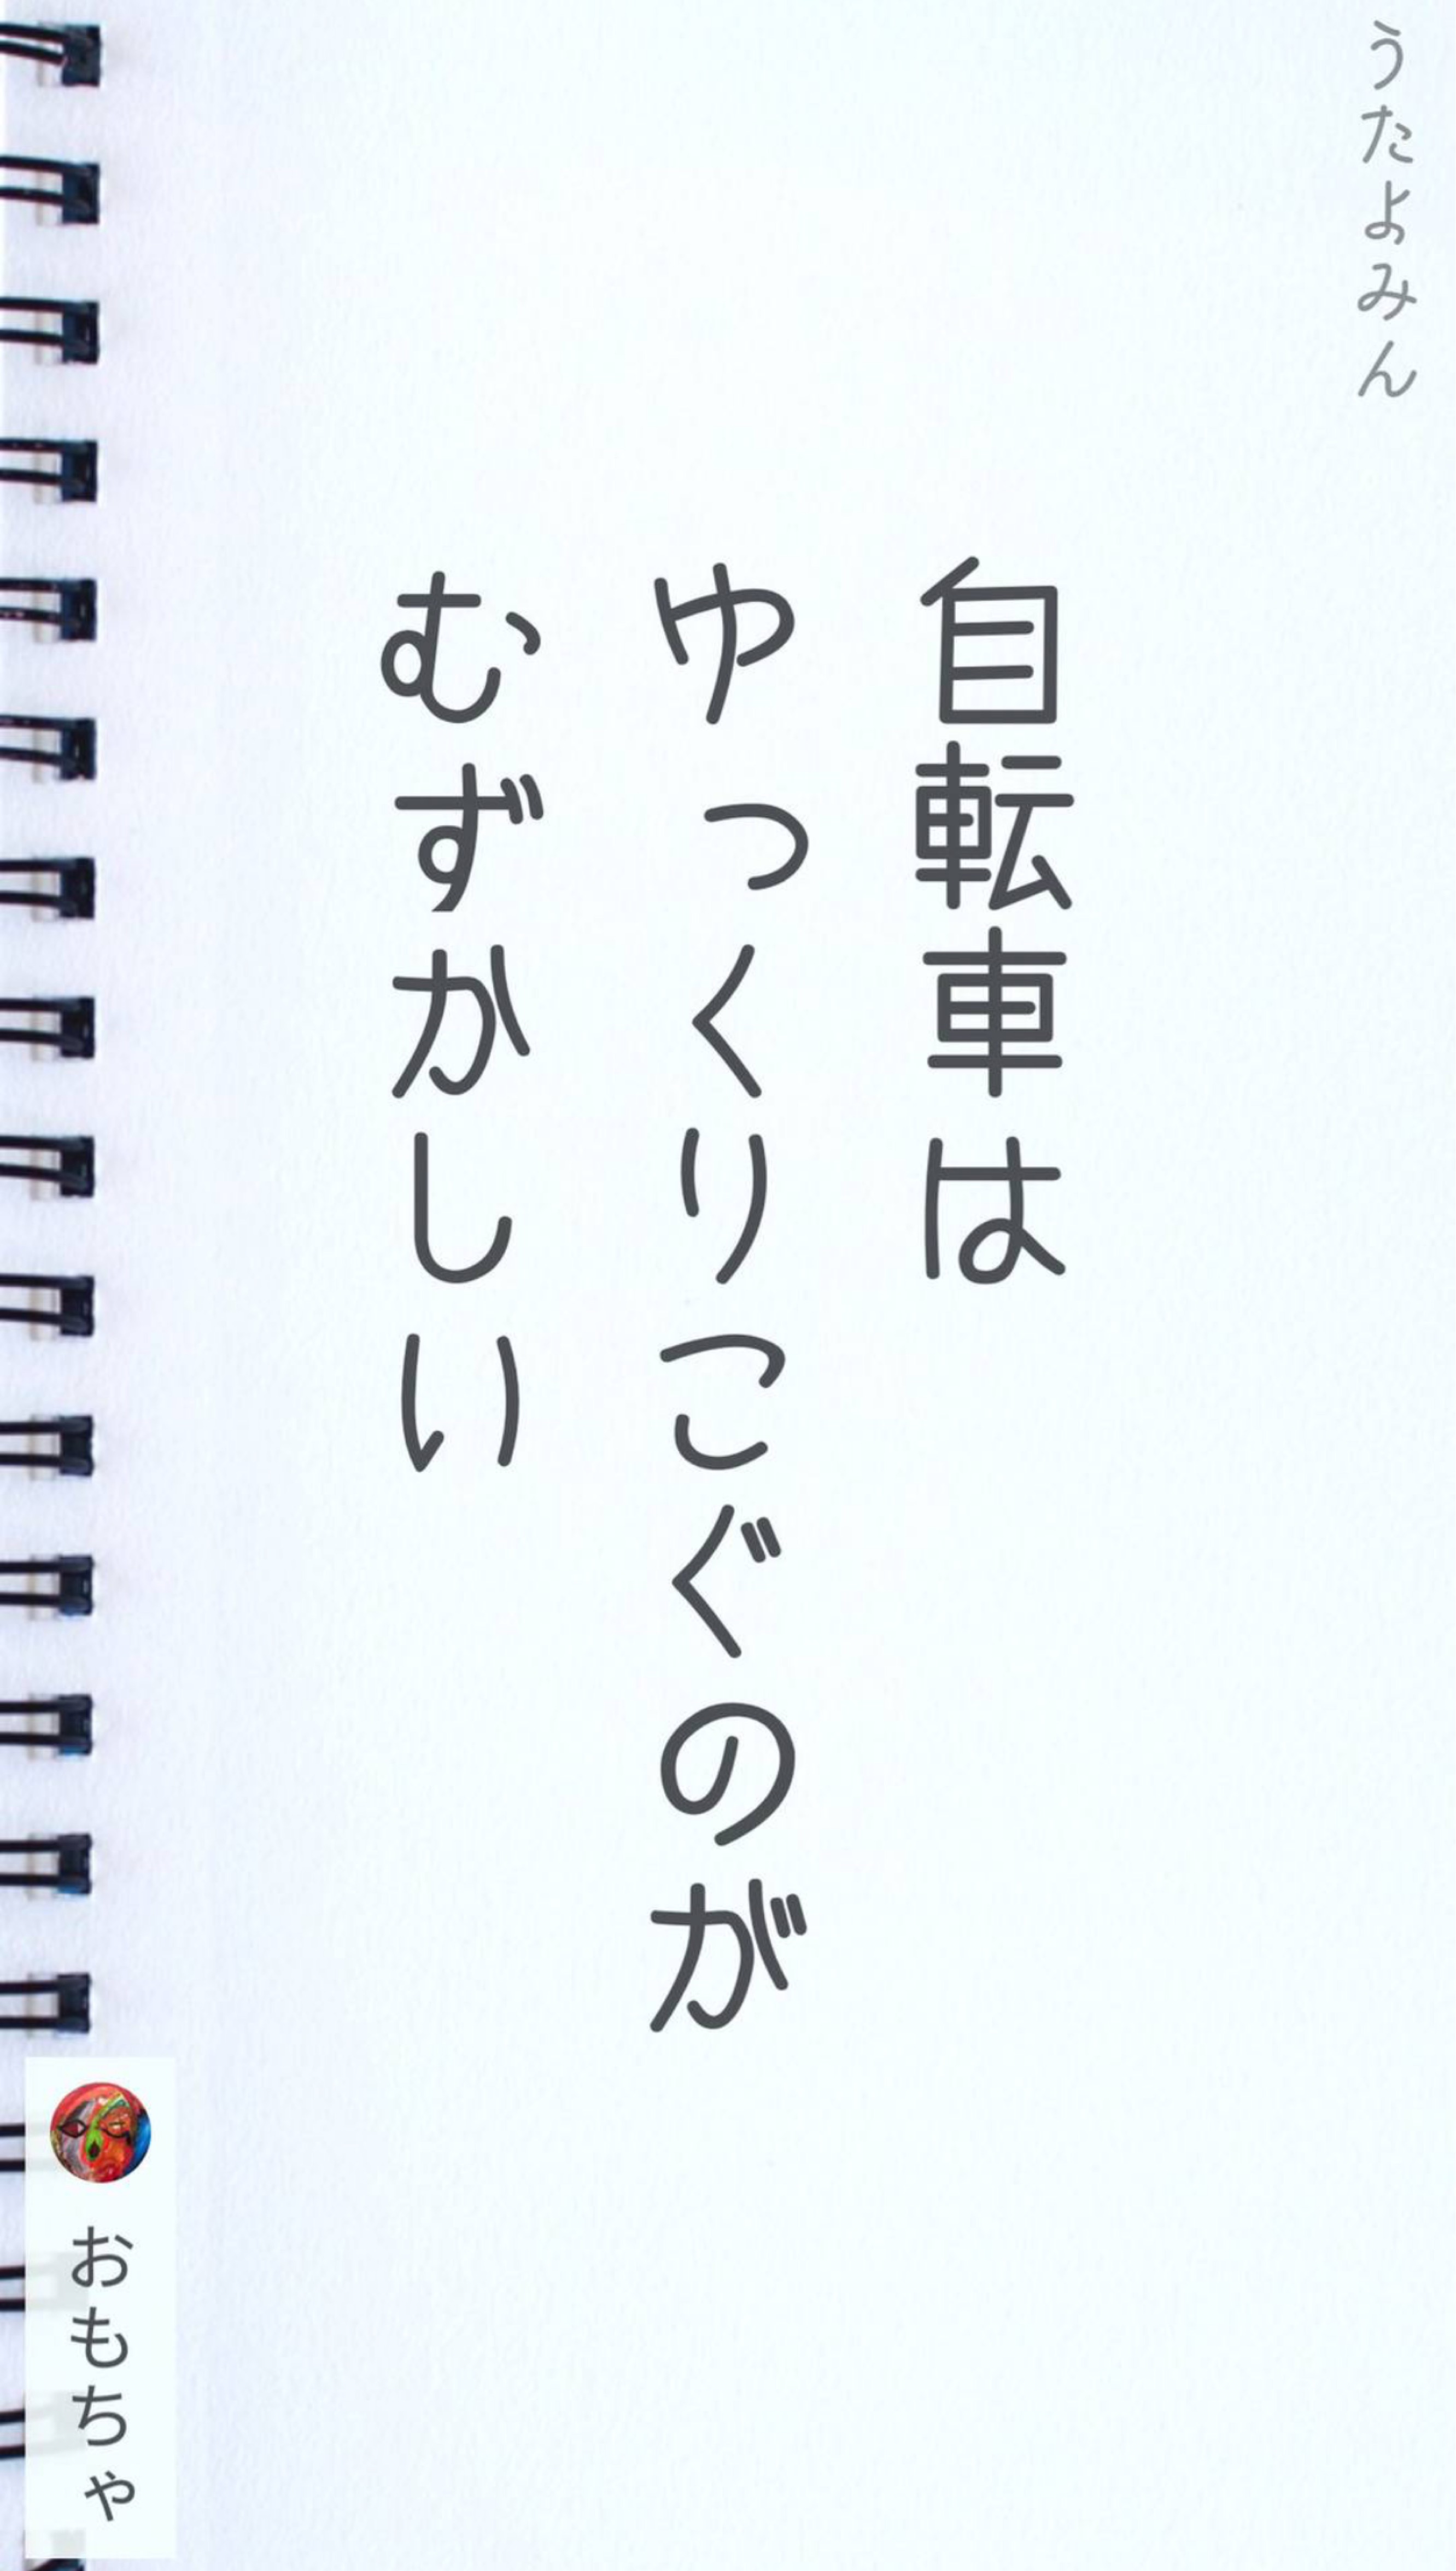 うたよみん
自転車は
ゆっくりこぐのが
むずかしい
おもちゃ